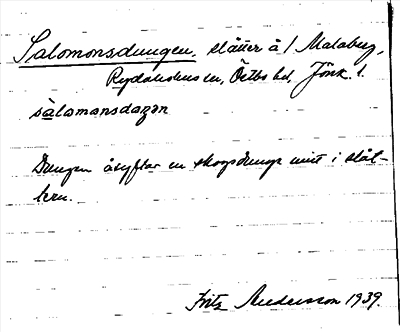 Salomonsdungen, slåtter å 1 Malaberg,
Rydaholms sn, Östbo hd, Jönk. l.
sàlomansdaŋən
Dungen åsyftar en skogsdunge mitt i slåt-
tern.
Fritz Andersson 1939.